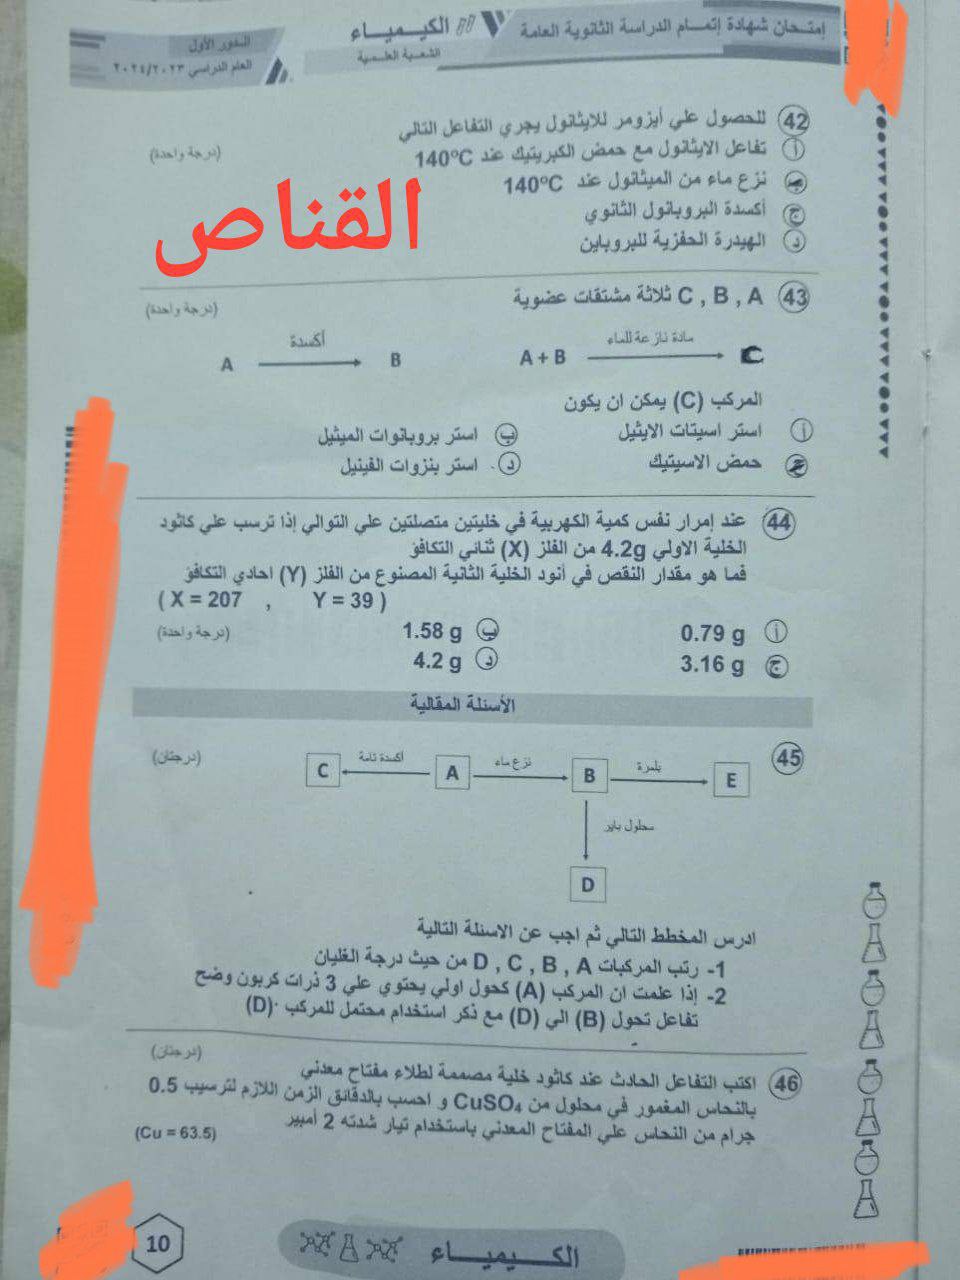 إمتحان شهادة إتمام الدراسة الثانوية العامة
الكيمياء
الشعبة العلمية
الدور الأول
العام الدراسي ٢٠٢٤/٢٠٢٣
42 للحصول علي أيزومر للايثانول يجري التفاعل التالي
(درجة واحدة)
أ تفاعل الايثانول مع حمض الكبريتيك عند 140°C
ب نزع ماء من الميثانول عند 140°C
ج أكسدة البروبانول الثانوي
د الهيدرة الحفزية للبروباين
القناص
43 C , B , A ثلاثة مشتقات عضوية
(درجة واحدة)
A أكسدة B
A + B مادة نازعة للماء C
المركب (C) يمكن ان يكون
أ استر اسيتات الايثيل
ب استر بروبانوات الميثيل
ج حمض الاسيتيك
د استر بنزوات الفينيل
44 عند إمرار نفس كمية الكهربية في خليتين متصلتين علي التوالي إذا ترسب علي كاثود
الخلية الاولي 4.2g من الفلز (X) ثنائي التكافؤ
فما هو مقدار النقص في أنود الخلية الثانية المصنوع من الفلز (Y) احادي التكافؤ
( X = 207 , Y = 39 )
(درجة واحدة)
أ 0.79 g
ب 1.58 g
ج 3.16 g
د 4.2 g
الأسئلة المقالية
45
(درجتان)
C أكسدة تامة A نزع ماء B بلمرة E
محلول باير
D
ادرس المخطط التالي ثم اجب عن الاسئلة التالية
1- رتب المركبات D , C , B , A من حيث درجة الغليان
2- إذا علمت ان المركب (A) كحول اولي يحتوي علي 3 ذرات كربون وضح
تفاعل تحول (B) الي (D) مع ذكر استخدام محتمل للمركب (D)
(درجتان)
46 اكتب التفاعل الحادث عند كاثود خلية مصممة لطلاء مفتاح معدني
بالنحاس المغمور في محلول من CuSO₄ و احسب بالدقائق الزمن اللازم لترسيب 0.5
جرام من النحاس علي المفتاح المعدني باستخدام تيار شدته 2 أمبير
(Cu = 63.5)
10
الكيمياء